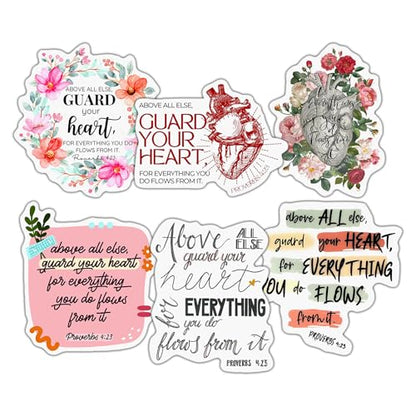 ABOVE ALL ELSE,
GUARD
your
heart,
FOR EVERYTHING YOU DO
FLOWS FROM IT.
Proverbs 4:23
ABOVE ALL ELSE,
GUARD
YOUR
HEART,
FOR EVERYTHING YOU
DO FLOWS FROM IT.
PROVERBS 4:23
above all else,
guard your heart
for everything
you do flows
from it
Proverbs 4:23
Above ALL
ELSE
guard your
heart
for EVERYTHING
you do
flows from it
PROVERBS 4:23
above ALL else,
guard your HEART,
for EVERYTHING
YOU do FLOWS
from it.
PROVERBS 4:23